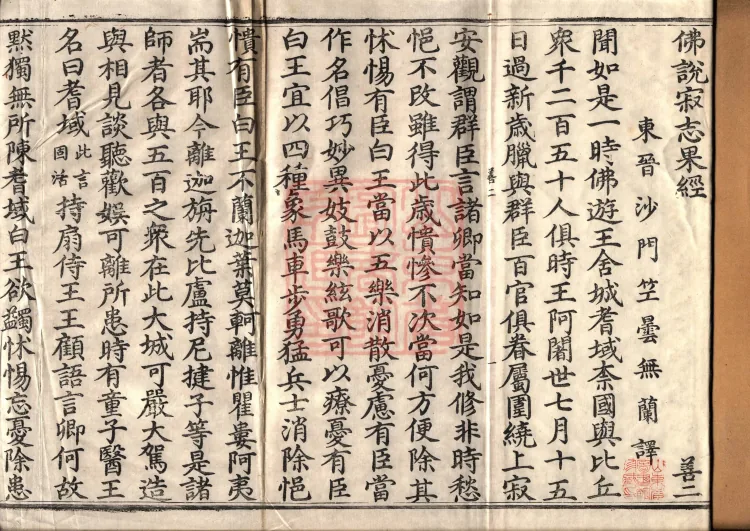 佛說寂志果經
東晉沙門竺曇無蘭譯 善二
聞如是一時佛遊王舍城耆域柰國與比丘
衆千二百五十人俱時王阿闍世七月十五
日過新歲臘與群臣百官俱眷屬圍繞上寂
善二
安觀謂群臣言諸卿當知如是我修非時愁
悒不改雖得此歲憒慘不次當何方便除其
怵惕有臣白王當以五樂消散憂慮有臣當
作名倡巧妙異妓鼓樂絃歌可以療憂有臣
白王宜以四種象馬車步勇猛兵士消除悒
憒有臣白王不蘭迦葉莫軻離惟瞿婁阿夷
耑其耶今離迦旃先比盧持尼揵子等是諸
師者各與五百之衆在此大城可嚴大駕造
與相見談聽歡娛可離所患時有童子醫王
名曰耆域此言固活持扇侍王王顧語言卿何故
默獨無所陳耆域白王欲蠲怵惕忘憂除患